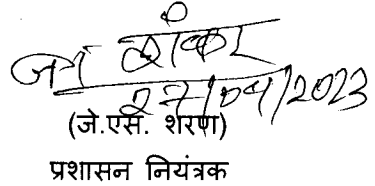 जय शंकर
27/04/2023
(जे.एस. शरण)
प्रशासन नियंत्रक